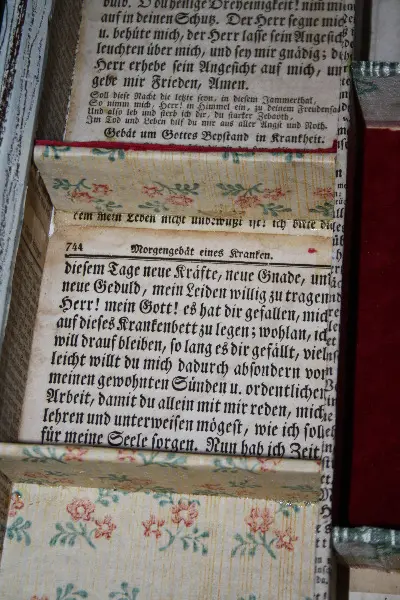 Du heilige Dreyeinigkeit! nim mich
auf in deinen Schutz. Der Herr segne mic
u. behüte mich, der Herr lasse sein Angesich
leuchten über mich, und sey mir gnädig; de
Herr erhebe sein Angesicht auf mich, un
gebe mir Frieden, Amen.
Soll diese Nacht die letzte seyn, in diesem Jammerthal,
So nimm mich, Herr! in Himmel ein, zu deinem Freudensaal
Und also leb und sterb ich dir, du starker Zebaoth,
Im Tod und Leben hilf du mir aus aller Angst und Noth.
Gebät um Gottes Beystand in Krankheit.
mein Leben nicht bewußt ist: ich bitte
744 Morgengebät eines Kranken.
diesem Tage neue Kräfte, neue Gnade, un
neue Geduld, mein Leiden willig zu tragen
Herr! mein Gott! es hat dir gefallen, mich
auf dieses Krankenbett zu legen; wohlan, ich
will drauf bleiben, so lang es dir gefällt, viel
leicht willt du mich dadurch absondern von
meinen gewohnten Sünden u. ordentlicher
Arbeit, damit du allein mit mir reden, mich
lehren und unterweisen mögest, wie ich soll
für meine Seele sorgen. Nun hab ich Zeit